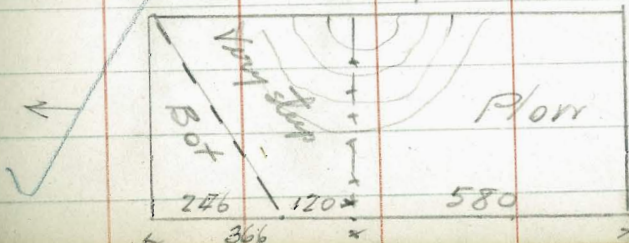 Very steep
Bot
Plow
246 120 580
366